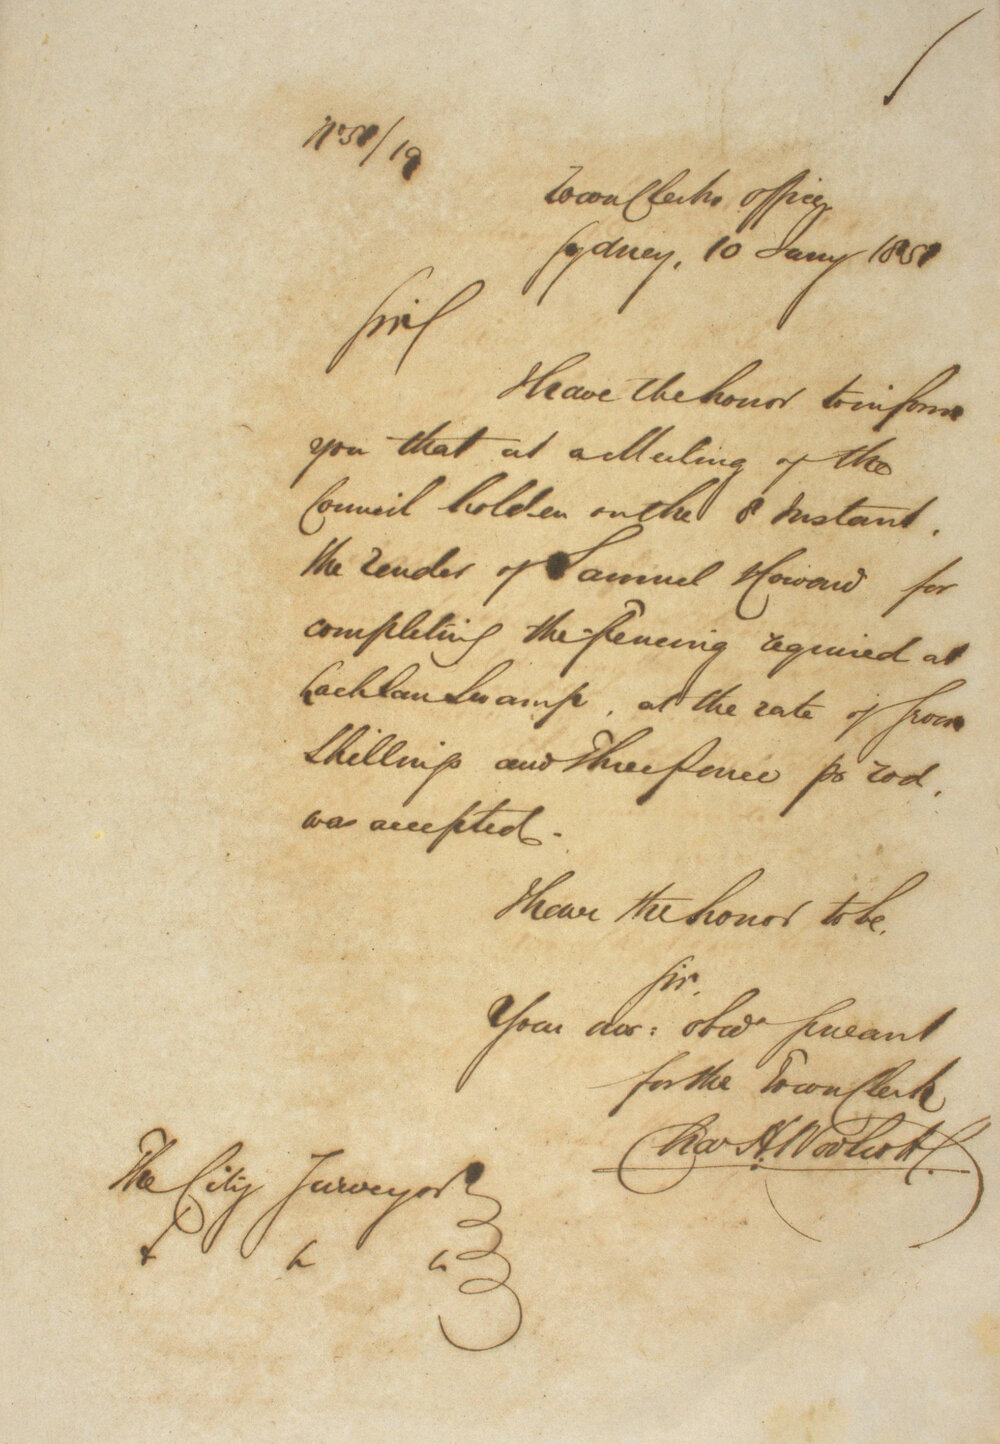 No 51/19
Town Clerks Office
Sydney, 10 Jany 1851
Sir
I have the honor to inform
you that at a Meeting of the
Council holden on the 8 Instant,
the Tender of Samuel Howard for
completing the fencing required at
Lachlan Swamp, at the rate of
Shillings and Threepence pr rod,
was accepted.
I have the honor to be,
Sir,
Your obdt Servant
for the Town Clerk
Chas H. Woolcott
The City Surveyor